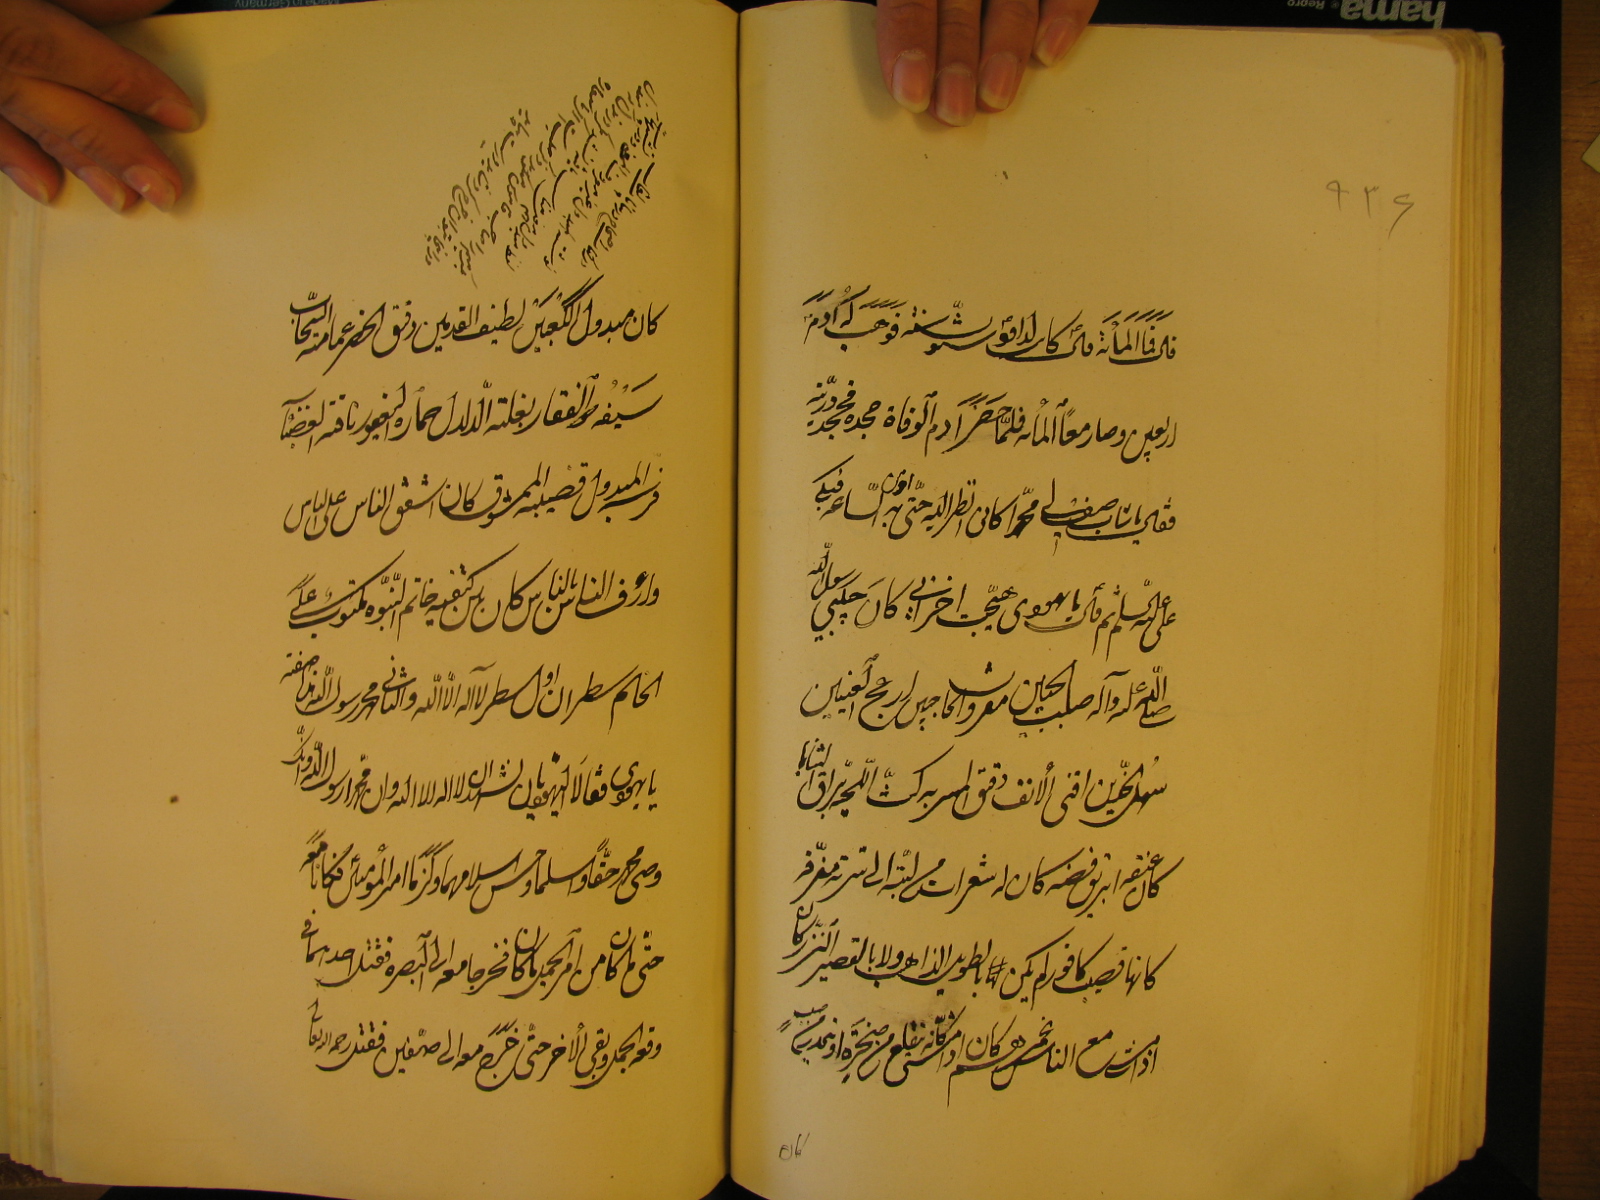 ۹۳۶
قال فما المائة قال كان لداود ستون سنة فوهب له آدم
اربعين وصار معًا المائة فلمّا حضر آدم الوفاة جحده فجحد ذرّيته
فقال يا شاب صف لي محمّدا كاني انظر اليه حتّى اومن به السّاعة فبكى
علي عليه السلم ثم قال يا يهودي هيّجت احزاني كان حبيبي رسول الله
صلى الله عليه وآله صلت الجبين مقرون الحاجبين ادعج العينين
سهل الخدّين اقنى الانف دقيق المسربه كثّ اللحية برّاق الثنايا
كان عنقه ابريق فضه كان له شعرات من لبّته الى سرته متفرقة
كانها قضيب كافور لم يكن بالطويل الذاهب ولا بالقصير النزر كان
اذا مشى مع الناس غمرهم كان اذا مشى كأنه يتقلع من صخرة او ينحدر من صبب
كان
كان مبدول الكعبين لطيف القدمين دقيق الخصر عمامته السّحاب
سيفه ذو الفقار بغلته الدّلدل حماره اليعفور ناقته العضبآء
فرسه المبدول قضيبه الممشوق كان اشفق الناس على الناس
وارؤف الناس بالناس كان بين كتفيه خاتم النّبوّه مكتوب على
الخاتم سطران اول سطر لا اله الا الله والثاني محمد رسول الله هذه صفته
يا يهودي فقالا اليهوديان نشهد ان لا اله الا الله وان محمّدا رسول الله وانّك
وصى محمد حقًّا واسلما وحسن اسلامهما ولزما امير المؤمنين فكانا معه
حتّى كان من امر الجمل ما كان فخرجا معه الى البصره فقتل احدهما في
وقعه الجمل وبقى الاخر حتّى خرج معه الى صفّين فقتل رحمه الله تعالى